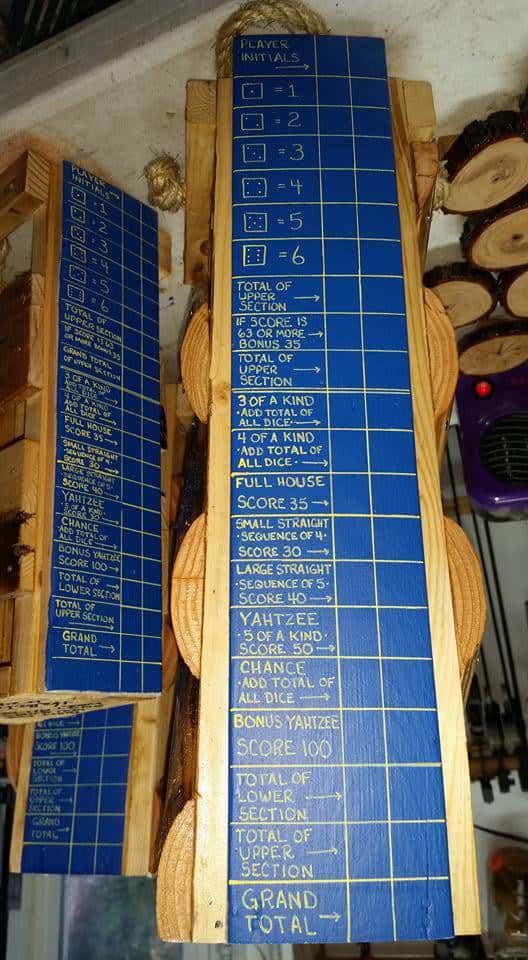 PLAYER
INITIALS →
= 1
= 2
= 3
= 4
= 5
= 6
TOTAL OF
UPPER →
SECTION
IF SCORE IS
63 OR MORE →
BONUS 35
TOTAL OF
UPPER →
SECTION
3 OF A KIND
·ADD TOTAL OF
ALL DICE· →
4 OF A KIND
·ADD TOTAL OF
ALL DICE· →
FULL HOUSE
SCORE 35 →
SMALL STRAIGHT
·SEQUENCE OF 4·
SCORE 30 →
LARGE STRAIGHT
·SEQUENCE OF 5·
SCORE 40 →
YAHTZEE
·5 OF A KIND·
SCORE 50 →
CHANCE
·ADD TOTAL OF
ALL DICE →
BONUS YAHTZEE
SCORE 100
TOTAL OF
LOWER →
SECTION
TOTAL OF
UPPER →
SECTION
GRAND
TOTAL →
PLAYER
INITIALS →
= 1
= 2
= 3
= 4
= 5
= 6
TOTAL OF
UPPER SECTION
IF SCORE IS 63
OR MORE BONUS 35
GRAND TOTAL
OF UPPER SECTION
3 OF A KIND
ADD TOTAL OF
ALL DICE
4 OF A KIND
ADD TOTAL OF
ALL DICE
FULL HOUSE
SCORE 35 →
SMALL STRAIGHT
·SEQUENCE OF 4·
SCORE 30 →
LARGE STRAIGHT
·SEQUENCE OF 5·
SCORE 40 →
YAHTZEE
5 OF A KIND
SCORE 50 →
CHANCE
·ADD TOTAL OF
ALL DICE →
BONUS YAHTZEE
SCORE 100 →
TOTAL OF
LOWER SECTION
TOTAL OF
UPPER SECTION
GRAND
TOTAL →
ALL DICE →
BONUS YAHTZEE
SCORE 100
TOTAL OF
LOWER →
SECTION
TOTAL OF
UPPER →
SECTION
GRAND
TOTAL →